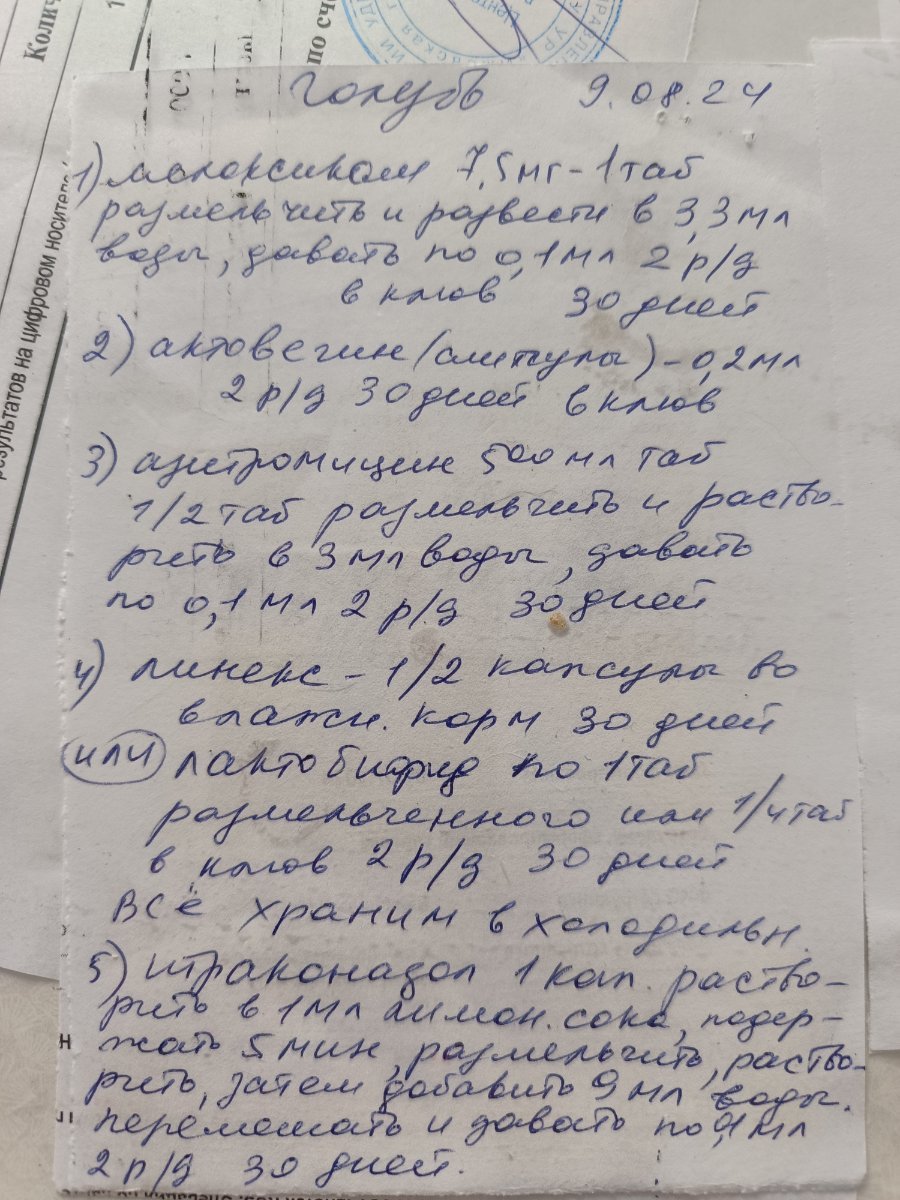 Колич
по сче
результатов на цифровом носителе
Голубь 9.08.24
1) мелоксикам 7,5мг - 1 таб
размельчить и развести в 3,3 мл
воды, давать по 0,1 мл 2 р/д
в клюв 30 дней
2) актовегин (ампулы) - 0,2 мл
2 р/д 30 дней в клюв
3) азитромицин 500 мл таб
1/2 таб размельчить и раство-
рить в 3 мл воды, давать
по 0,1 мл 2 р/д 30 дней
4) линекс - 1/2 капсулы во
влажн. корм 30 дней
или лактобифид по 1 таб
размельченного или 1/4 таб
в клюв 2 р/д 30 дней
ВСЁ ХРАНИМ в холодильн.
5) итраконазол 1 кап. раство-
рить в 1 мл лимон. сока, подер-
жать 5 мин, размельчить, раство-
рить, затем добавить 9 мл воды.
перемешать и давать по 0,1 мл
2 р/д 30 дней.